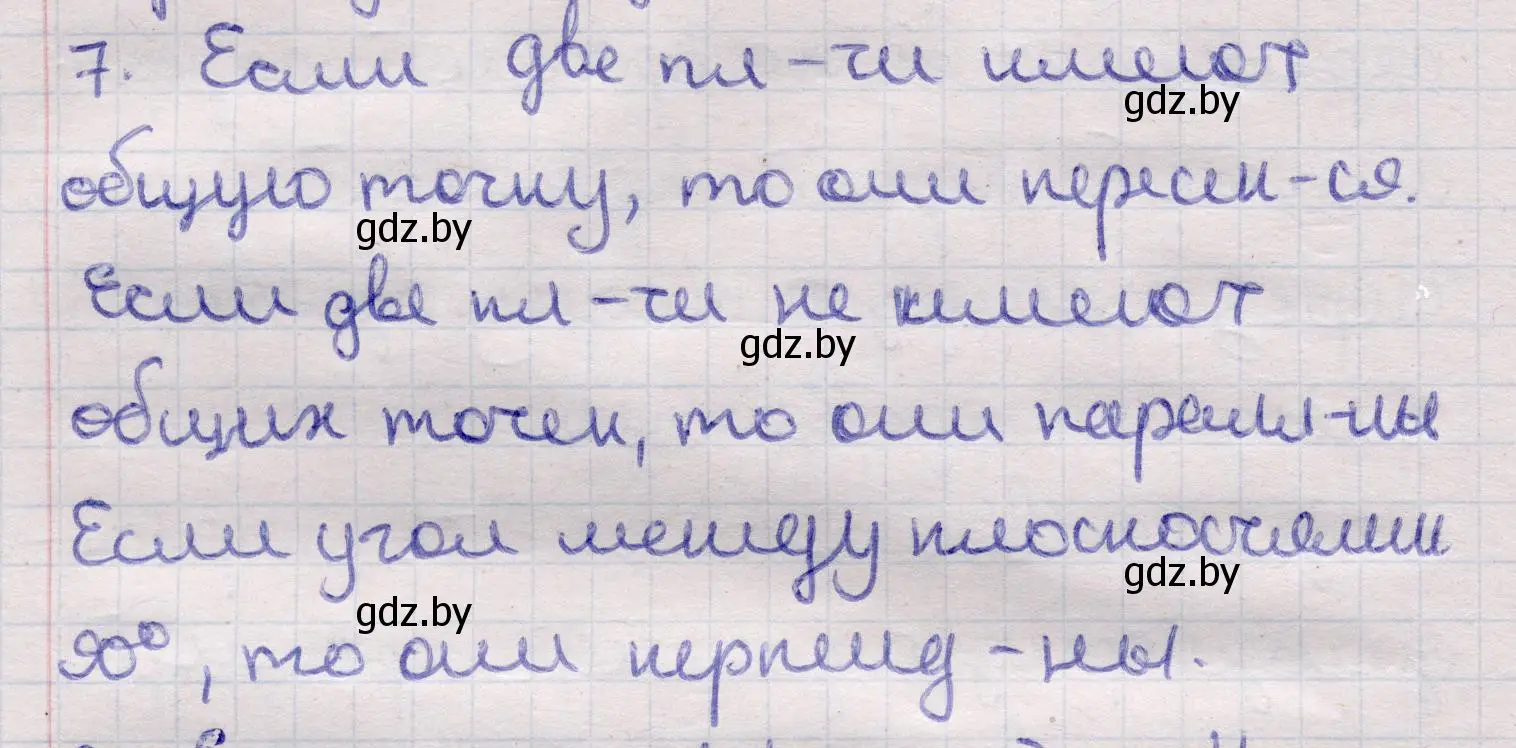 7. Если две пл-ти имеют
gdz.by
общую точку, то они пересек-ся.
gdz.by
Если две пл-ти не имеют
gdz.by
общих точек, то они паралл-ны
Если угол между плоскостями
gdz.by
gdz.by
90°, то они перпенд-ны.